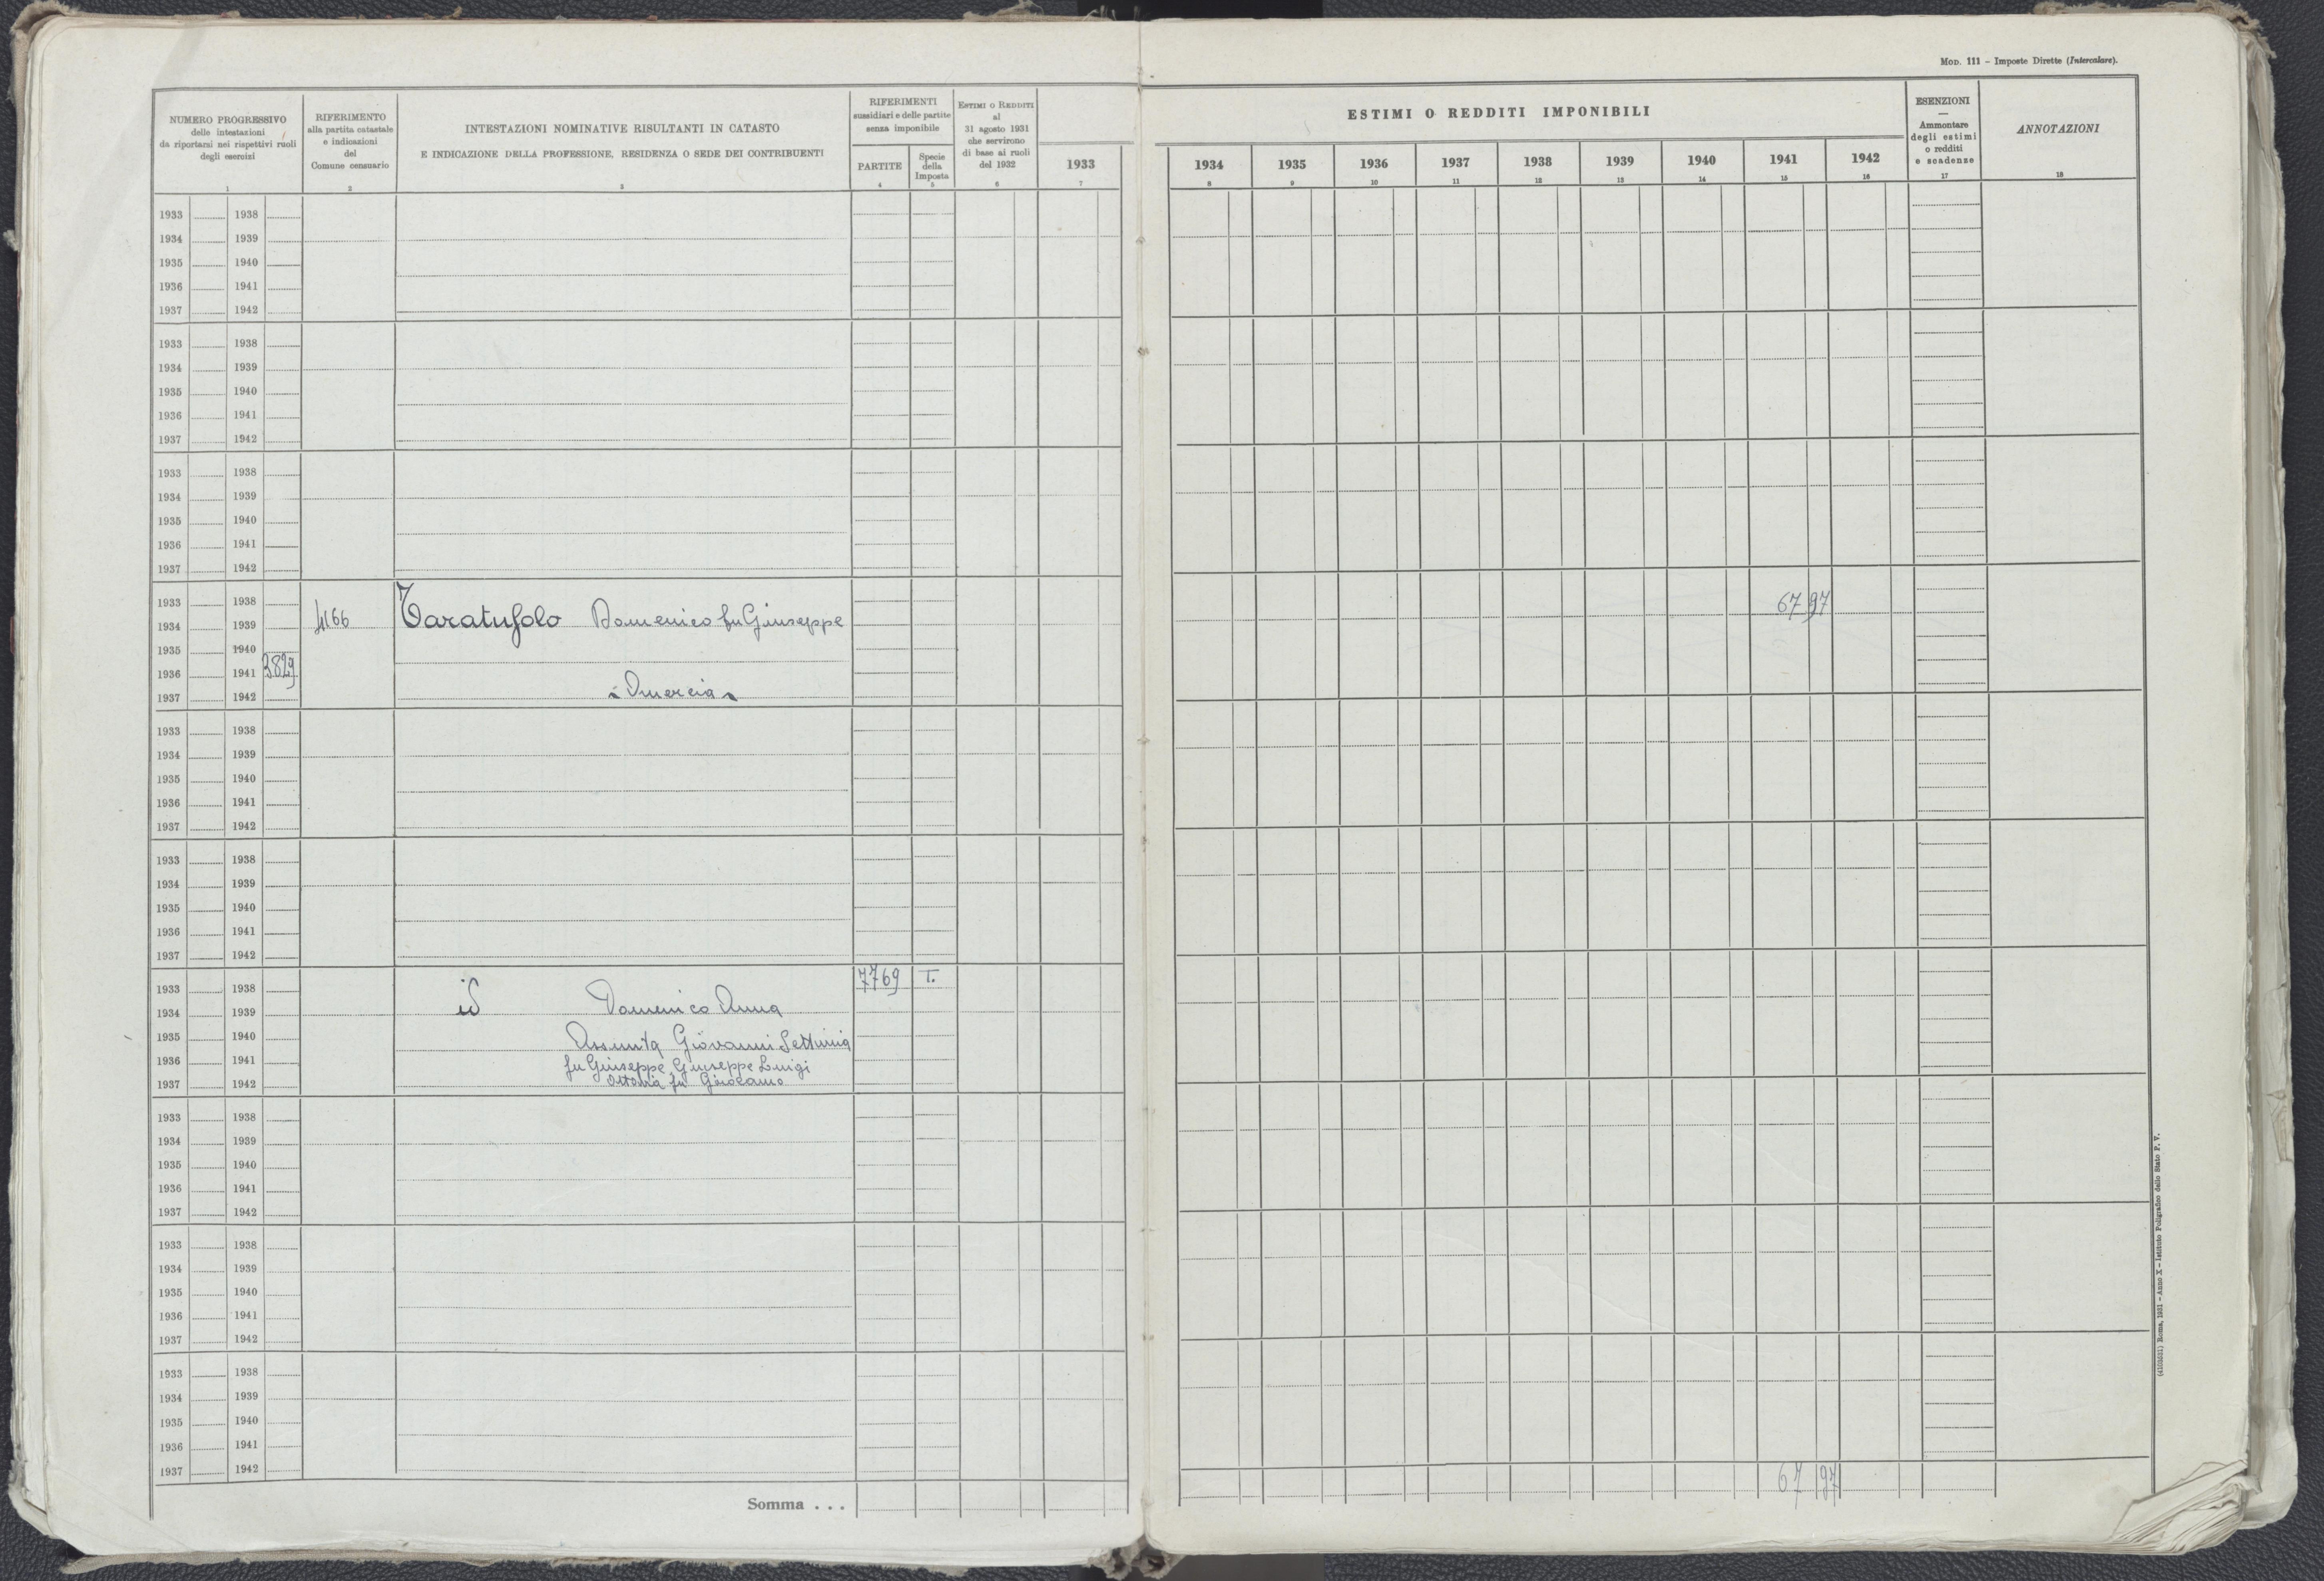 MOD. 111 – Imposte Dirette (Intercalare).
NUMERO PROGRESSIVO
delle intestazioni
da riportarsi nei rispettivi ruoli
degli esercizi
1
RIFERIMENTO
alla partita catastale
e indicazioni
del
Comune censuario
2
INTESTAZIONI NOMINATIVE RISULTANTI IN CATASTO
E INDICAZIONE DELLA PROFESSIONE, RESIDENZA O SEDE DEI CONTRIBUENTI
3
RIFERIMENTI
sussidiari e delle partite
senza imponibile
PARTITE
4
Specie
della
Imposta
5
ESTIMI O REDDITI
al
31 agosto 1931
che servirono
di base ai ruoli
del 1932
6
1933
7
ESTIMI O REDDITI IMPONIBILI
1934 1935 1936 1937 1938 1939 1940 1941 1942
8 9 10 11 12 13 14 15 16
ESENZIONI
—
Ammontare
degli estimi
o redditi
e scadenze
17
ANNOTAZIONI
18
1933 1938
1934 1939
1935 1940
1936 1941
1937 1942
1933 1938
1934 1939
1935 1940
1936 1941
1937 1942
1933 1938
1934 1939
1935 1940
1936 1941
1937 1942
1933 1938 67 97
1934 1939 4166 Taratufolo Domenico fu Giuseppe
1935 1940
1936 1941 3829
1937 1942
1933 1938
1934 1939
1935 1940
1936 1941
1937 1942
1933 1938
1934 1939
1935 1940
1936 1941
1937 1942
1933 1938 7769 T.
1934 1939 id Domenico Anna
1935 1940 Assunta Giovanni Settimia
1936 1941 fu Giuseppe Giuseppe Luigi
1937 1942 fu Girolamo
1933 1938
1934 1939
1935 1940
1936 1941
1937 1942
1933 1938
1934 1939
1935 1940
1936 1941
1937 1942
1933 1938
1934 1939
1935 1940
1936 1941
1937 1942
Somma . . . 67 97
(4103531) Roma, 1931 – Anno X – Istituto Poligrafico dello Stato P. V.